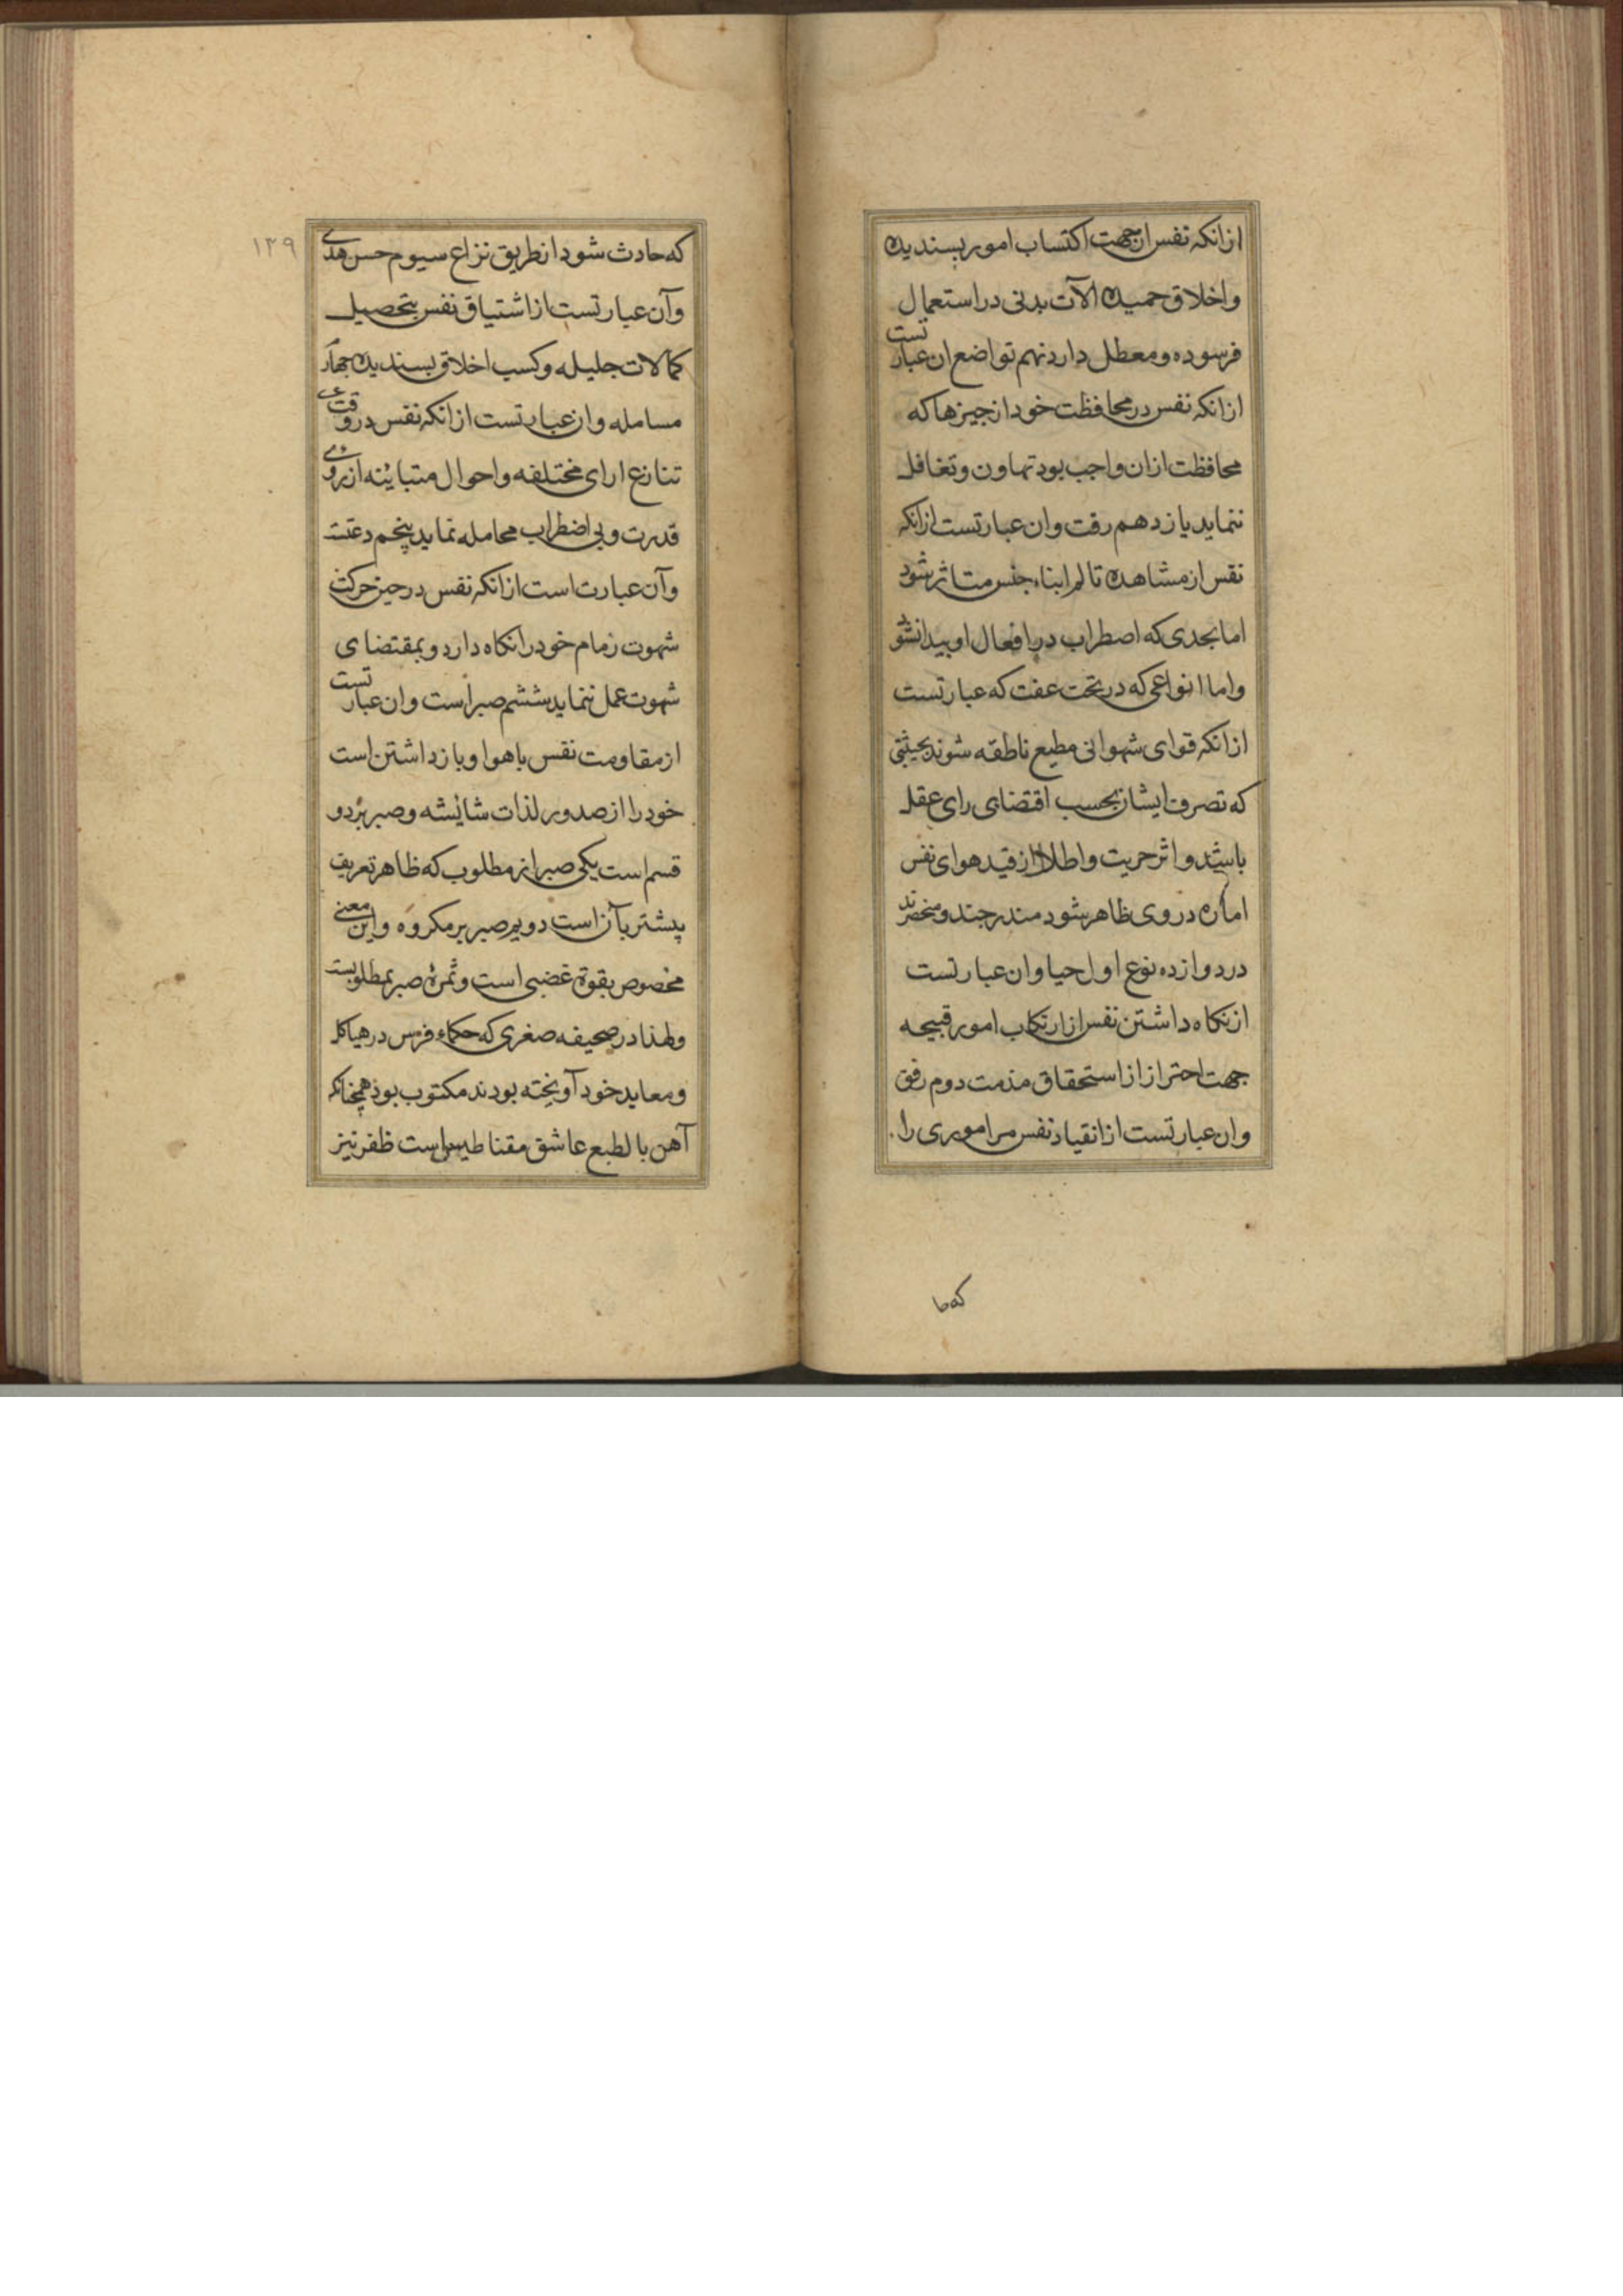 ازانکه نفس از جهت اکتساب امور پسندیده
و اخلاق حمیده الآت بدنی در استعمال
فرسوده و معطل دارد نهم تواضع ان عبارتست
ازانکه نفس در محافظت خود از چیزها که
محافظت ازان واجب بود تهاون و تغافل
ننماید یازدهم رقت وان عبارتست ازانکه
نفس از مشاهده تالم ابناء جنس متاثر شود
اما بحدی که اضطراب در افعال او پیدا نشود
واما انواعی که در تحت عفت که عبارتست
ازانکه قوای شهوانی مطیع ناطقه شوند بحیثیتی
که تصرف ایشان بحسب اقتضای رای عقل
باشد و اثر حریت و اطلاق از قید هوای نفس
اماره در وی ظاهر شود مندرجند و منحصرند
در دوازده نوع اول حیا وان عبارتست
از نکاه داشتن نفس از ارتکاب امور قبیحه
جهت احتراز از استحقاق مذمت دوم رفق
وان عبارتست از انقیاد نفس مر اموری را
که حا
۱۳۹
که حادث شود از طریق نزاع سیوم حسن هدی
وآن عبارتست از اشتیاق نفس بتحصیل
کمالات جلیله و کسب اخلاق پسندیده چهار
مسامله وان عبارتست ازانکه نفس در وقت
تنازع ارای مختلفه و احوال متباینه از روی
قدرت و بی اضطراب مجامله نماید پنجم دعتست
وآن عبارت است ازانکه نفس در حین حرکت
شهوت زمام خود را نکاه دارد و بمقتضای
شهوت عمل ننماید ششم صبر است وان عبارتست
از مقاومت نفس با هوا و باز داشتن است
خود را از صدور لذات شایسته و صبر بر دو
قسم است یکی صبر از مطلوب که ظاهر تعریف
پیشتر بآن است دویم صبر بر مکروه و این معنی
مخصوص بقوة غضبی است و ثمرهٔ صبر بمطلوبست
ولهذا در صحیفه صغری که حکماء فرس در هیاکل
و معابد خود آویخته بودند مکتوب بود همچنانکه
آهن بالطبع عاشق مقناطیس است ظفر نیز